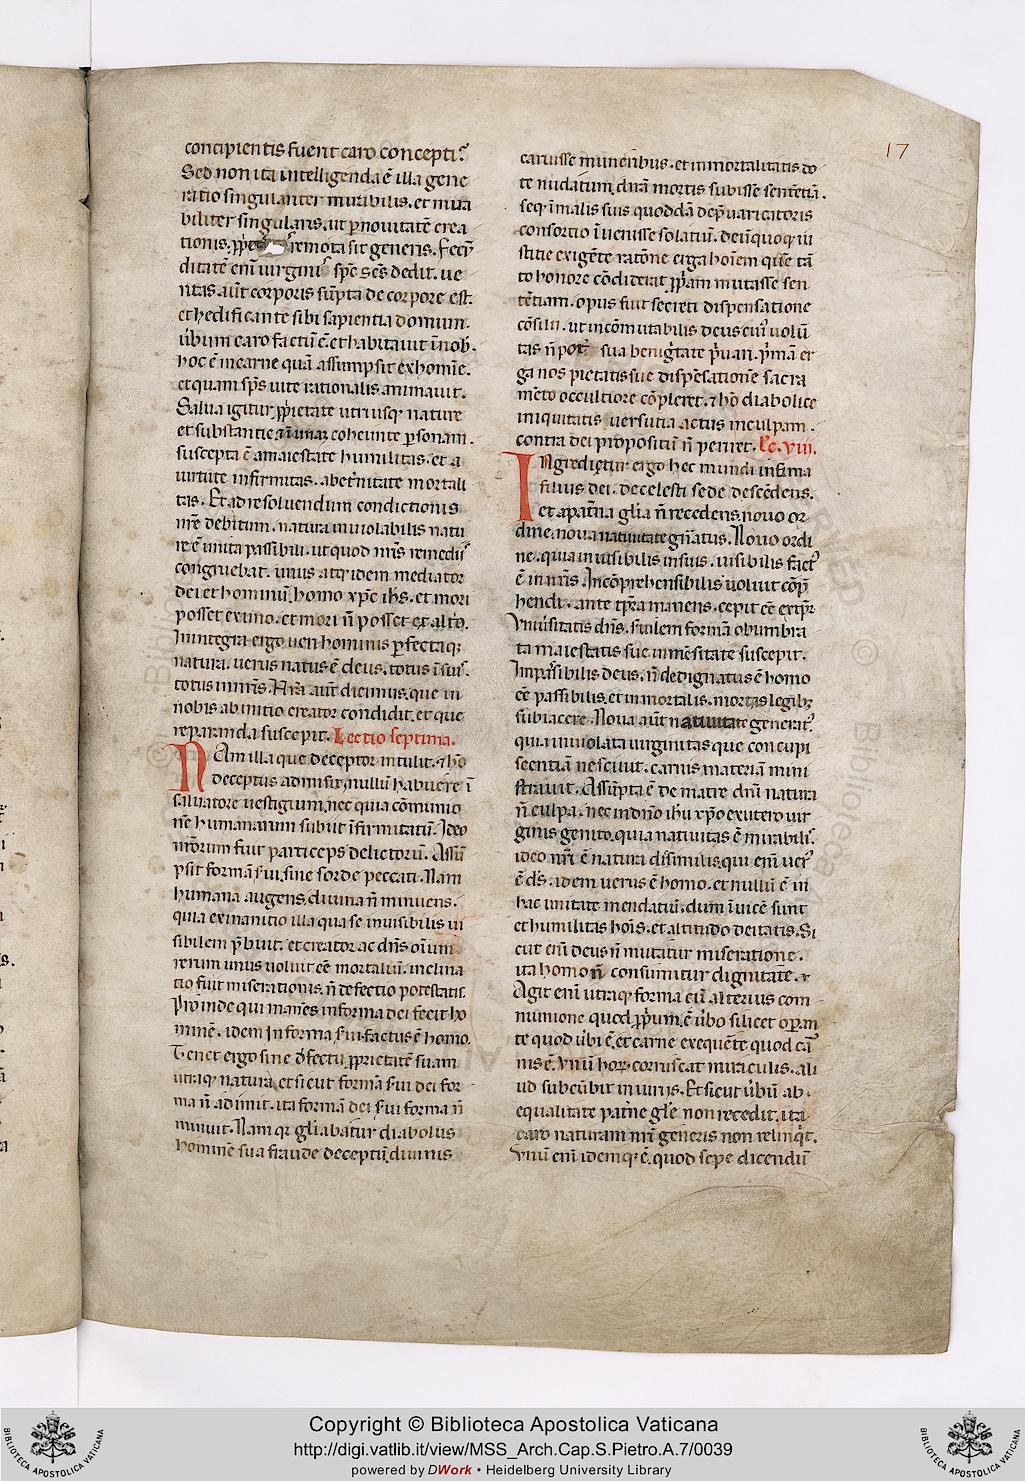 17
concipientis fuerit caro concepti?
Sed non ita intelligenda ē illa gene
ratio singulariter mirabilis. et mira
biliter singularis, ut ꝑ nouitatē crea
tionis, remota sit generis. Fecū
ditatē enī uirgini sp̄c sc̄s dedit. ue
ritas aūt corporis sūpta de corpore est.
et hedificante sibi sapientia domum.
uerbum caro factū ē. et habitauit ī nob̄.
hoc ē in carne quā assumpsit ex homīe.
et quam sp̄s uite rationalis animauit.
Salua igitur ꝓprietate utriusq; nature
et substantie et in unā coheunte ꝑsonam.
suscepta ē a maiestate humilitas. et a
uirtute infirmitas. ab et̄nitate mortali
tas. Et ad resoluendum condictionis
nr̄e debitum. natura inuiolabilis natu
re ē unita passibili. ut quod nr̄is remediis
congruebat. unus atq; idem mediator
dei et hominū, homo xp̄c ih̄s. et mori
posset ex uno. et mori n̄ posset ex alt̄o.
In integra ergo ueri hominis ꝑfectaq;
natura. uerus natus ē deus. totus ī suis.
totus in nr̄is. Nr̄a aūt dicimus, que in
nobis ab initio creator condidit. et que
reparanda suscepit. Lectio septima.
Nam illa que deceptor intulit. et hō
deceptus admisit, nullū habuere ī
saluatore uestigium, nec quia cōmunio
nē humanarum subiit īfirmitatū. Ideo
nr̄orum fuit particeps delictorū. Assū
psit formā serui, sine sorde peccati. Nam
humana augens, diuina n̄ minuens.
quia exinanitio illa qua se inuisibilis ui
sibilem p̄buit. et creator ac dn̄s oīum
rerum unus uoluit eē mortaliū. inclina
tio fuit miserationis, n̄ defectio potestatis.
Proinde qui manēs in forma dei fecit ho
minē. idem in forma serui factus ē homo.
Tenet ergo sine defectu ꝓprietatē suam
utraq; natura, et sicut formā serui dei for
ma n̄ adimit. ita formā dei serui forma n̄
minuit. Nam q; gl̄iabatur diabolus
hominē sua fraude deceptū, diuinis
caruisse muneribus. et inmortalitatis do
te nudatum, durā mortis subisse sententiā.
seq; ī malis suis quoddā de p̄uaricatoris
consortio īuenisse solatiū. deū quoq; iu
stitie exigēte ratōne erga hoīem quē tā
to honore cōdiderat ꝓpriam mutasse sen
tētiam. opus fuit secreti dispensatione
cōsilii. ut incōmutabilis deus cui' uolū
tas n̄ potest sua benignitate p̄uari. p̄mā er
ga nos pietatis sue dispēsationē sacra
mēto occultiore cōpleret. et hō diabolice
iniquitatis uersutia actus in culpam.
contra dei propositū n̄ periret. Lc. viii.
Ingreditur ergo hec mundi infima
filius dei. de celesti sede descēdens.
et a pat̄na gl̄ia n̄ recedens, nouo or
dine, noua natiuitate gn̄atus. Nouo ordi
ne. quia inuisibilis in suis. uisibilis factus
ē in nr̄is. Incōprehensibilis uoluit cōp̄
hendi. ante tp̄ra manens. cepit eē ex tp̄r
Vniuersitatis dn̄s. seruilem formā obumbra
ta maiestatis sue inmēsitate suscepit.
Impassibilis deus, n̄ dedignatus ē homo
eē passibilis. et inmortalis. mortis legib;
subiacere. Noua aūt natiuitate generatus.
quia inuiolata uirginitas que concupi
scentiā nesciuit. carnis materiā mini
strauit. Assūpta ē de matre dn̄i natura
n̄ culpa. nec in dn̄o ihū xp̄o ex utero uir
ginis genito, quia natiuitas ē mirabilis.
ideo nr̄i ē natura dissimilis, qui enī uerus
ē d̄s. idem uerus ē homo. et nullū ē in
hac unitate mendatiū. dum īuicē sunt
et humilitas hoīs. et altitudo deitatis. Si
cut enī deus n̄ mutatur miseratione.
ita homo n̄ consumitur dignitate.
Agit enī utraq; forma cū alterius com
munione quod ꝓprium ē. uerbo silicet operan
te quod uerbi ē. et carne exequēte quod car
nis ē. Vnū hor; coruscat miraculis. ali
ud subcūbit iniuriis. Et sicut uerbū ab
equalitate pat̄ne gl̄e non recedit, ita
caro naturam nr̄i generis non relinquit.
Vnū enī idemq; ē. quod sepe dicendū
BIBLIOTECA APOSTOLICA VATICANA
Copyright © Biblioteca Apostolica Vaticana
http://digi.vatlib.it/view/MSS_Arch.Cap.S.Pietro.A.7/0039
powered by DWork • Heidelberg University Library
BIBLIOTECA APOSTOLICA VATICANA